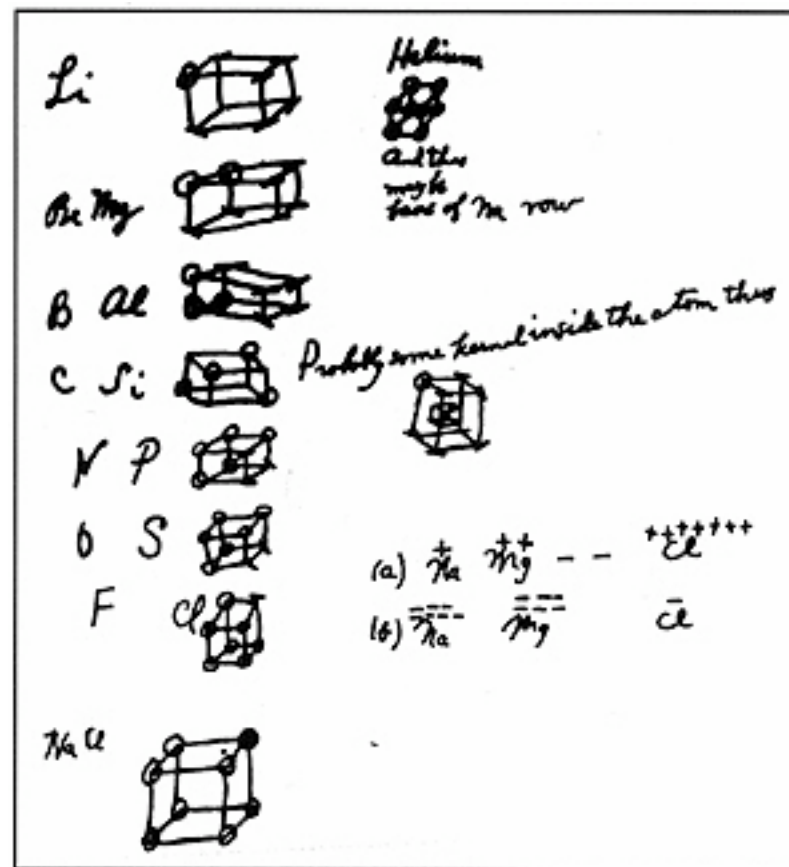 Li
Helium
And this
may be
of Na row
Be Mg
B Al
C Si
Probably some kernel inside the atom thus
N P
O S
F Cl
(a) + Na ++ Mg - - +++++++ Cl
(b) Na Mg - Cl
Na Cl